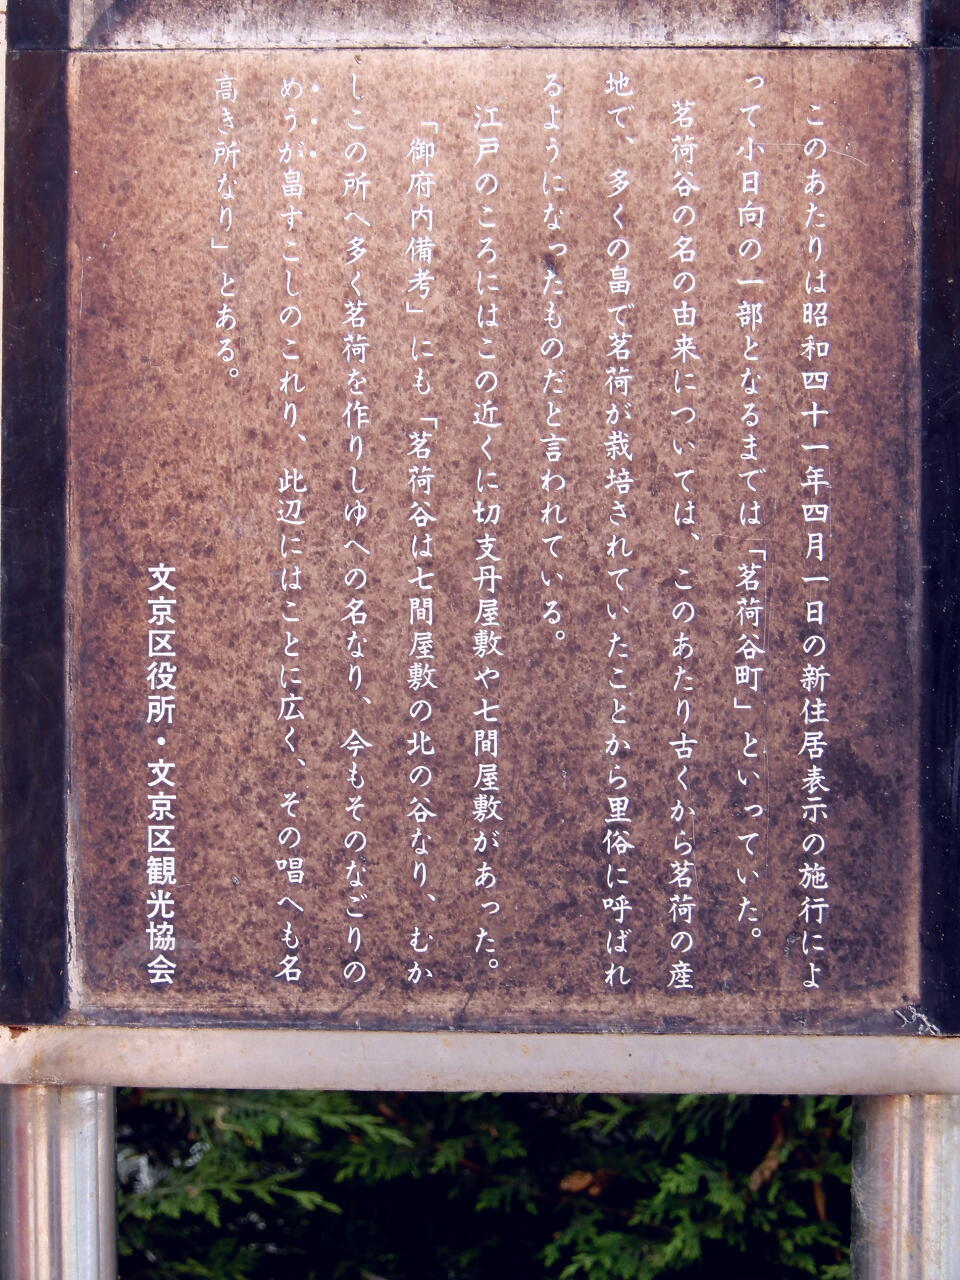 このあたりは昭和四十一年四月一日の新住居表示の施行によ
って小日向の一部となるまでは、「茗荷谷町」といっていた。
茗荷谷の名の由来については、このあたり古くから茗荷の産
地で、多くの畠で茗荷が栽培されていたことから里俗に呼ばれ
るようになったものだと言われている。
江戸のころにはこの近くに切支丹屋敷や七間屋敷があった。
「御府内備考」にも「茗荷谷は七間屋敷の北の谷なり、むか
しこの所へ多く茗荷を作りしゆへの名なり、今もそのなごりの
めうが畠すこしのこれり、此辺にはことに広く、その唱へも名
高き所なり」とある。
文京区役所・文京区観光協会